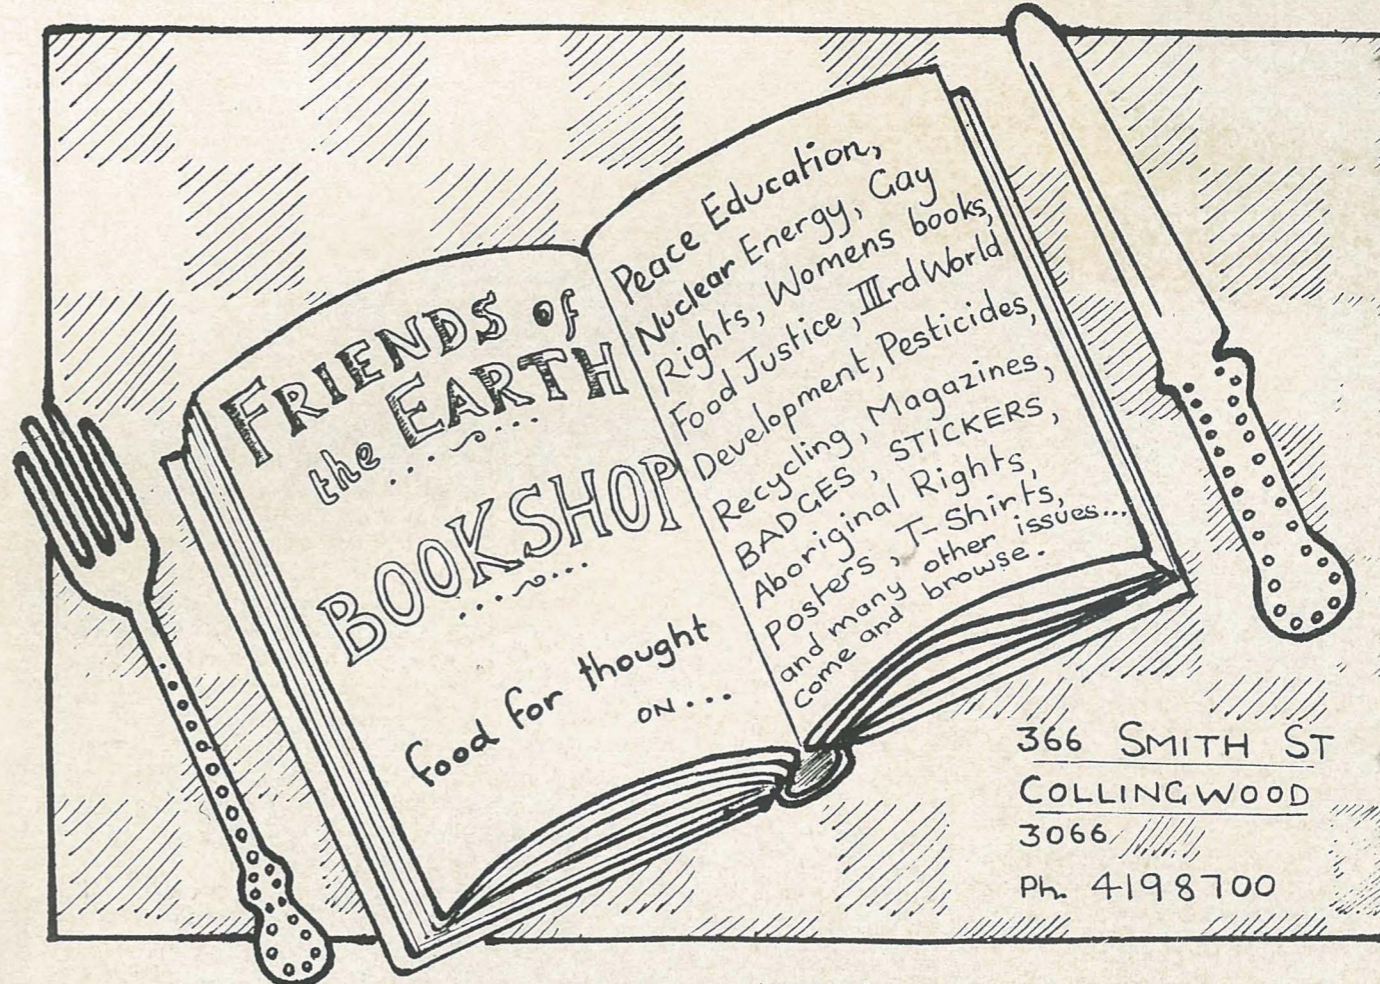 FRIENDS of
the EARTH
BOOKSHOP
food for thought
ON...
Peace Education,
Nuclear Energy, Gay
Rights, Womens books,
Food Justice, IIIrd World
Development, Pesticides,
Recycling, Magazines,
BADGES, STICKERS,
Aboriginal Rights,
Posters, T-Shirts,
and many other issues...
come and browse.
366 SMITH ST
COLLINGWOOD
3066
Ph. 4198700